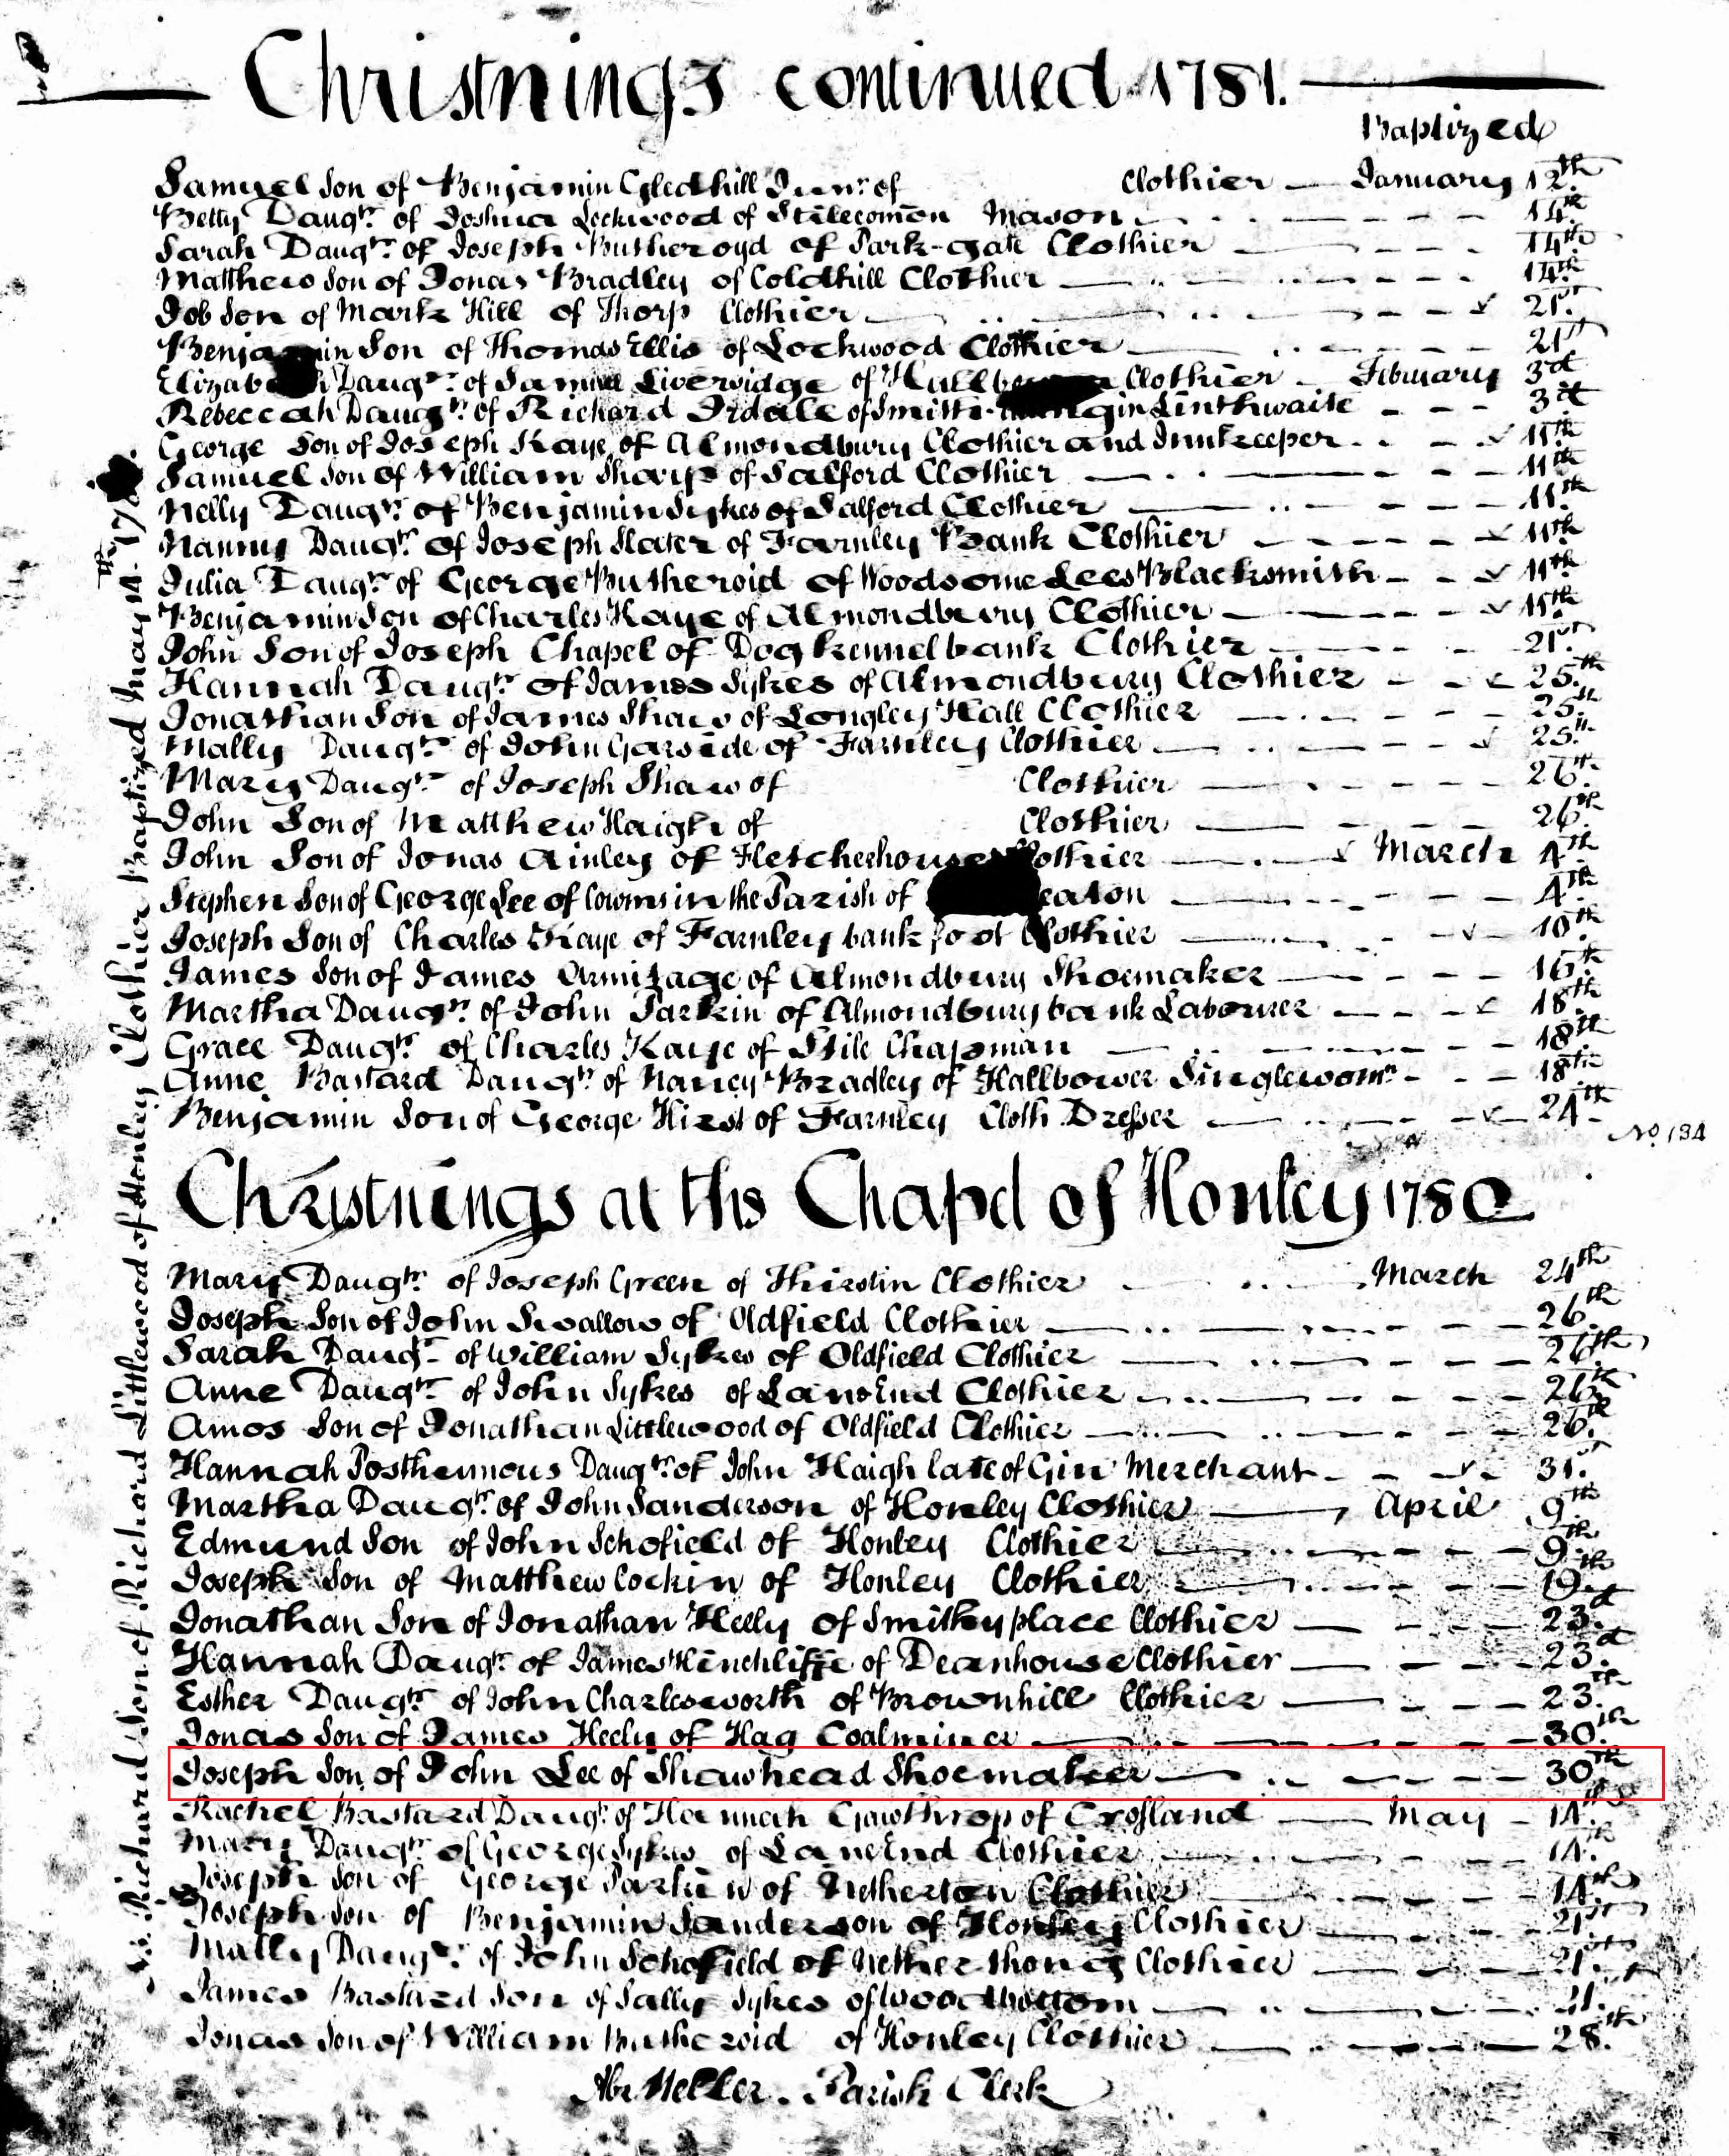 Christnings continued 1781.
Baptized
Samuel Son of Benjamin Gledhill Junr. of Clothier January 12th.
Betty Daugtr. of Joshua Lockwood of Stilecomon Mason 14th.
Sarah Daugtr. of Joseph Butheroyd of Park-gate Clothier 14th.
Matthew Son of Jonas Bradley of Coldhill Clothier 14th.
Job Son of Mark Hill of Thorp Clothier 21st.
Benjamin Son of Thomas Ellis of Lockwood Clothier 21st
Elizab h Daugtr. of Samuel Liversidge of Clothier February 3d
Rebeccah Daugtr. of Richard Irdale of in Linthwaite 3d
George Son of Joseph Kaye of Almondbury Clothier and Innkeeper 11th.
Samuel Son of William Sharp of Salford Clothier 11th
Nelly Daugtr. of Benjamin Sykes of Salford Clothier 11th.
Nanny Daugtr. of Joseph Slater of Farnley Bank Clothier 11th.
Julia Daugtr. of George Butheroid of Woodsome Lees Blacksmith 11th.
Benjamin Son of Charles Kaye of Almondbury Clothier 11th.
John Son of Joseph Chapel of Dogkennel bank Clothier 21st.
Hannah Daugtr. of James Sykes of Almondbury Clothier 25th.
Jonathan Son of James Shaw of Longley Hall Clothier 25th.
Mally Daugtr. of John Garside of Farnley Clothier 25th.
Mary Daugtr. of Joseph Shaw of Clothier 26th.
John Son of Matthew Haigh of Clothier 26th.
John Son of Jonas Ainley of Fletcherhouse Clothier March 4th.
Stephen Son of George Lee of in the Parish of eaton 4th.
Joseph Son of Charles Kaye of Farnley bank foot Clothier 10th.
James Son of James Armitage of Almondbury Shoemaker 16th.
Martha Daugtr. of John Parkin of Almondbury bank Labourer 18th.
Grace Daugtr. of Charles Kaye of Stile Chapman 18th
Anne Bastard Daugtr. of Nancy Bradley of Hallbower Singlewomn. 18th
Benjamin Son of George Hirst of Farnley Cloth Dresser 24th
No. 134
Christnings at the Chapel of Honley 1780
Mary Daugtr. of Joseph Green of Thirstin Clothier March 24th
Joseph Son of John Swallow of Oldfield Clothier 26th.
Sarah Daugtr. of William Sykes of Oldfield Clothier 26th
Anne Daugtr. of John Sykes of Lane End Clothier 26th
Amos Son of Jonathan Littlewood of Oldfield Clothier 26th.
Hannah Posthumous Daugtr. of John Haigh late of Gin Merchant 31st.
Martha Daugtr. of John Sanderson of Honley Clothier April 9th.
Edmund Son of John Schofield of Honley Clothier 9th.
Joseph Son of Matthew Cockin of Honley Clothier 19th.
Jonathan Son of Jonathan Heely of Smithy place Clothier 23d.
Hannah Daugtr. of James Hinchliffe of Deanhouse Clothier 23d.
Esther Daugtr. of John Charlesworth of Brownhill Clothier 23
Jonas Son of James Heely of Hag Coalminer 30th.
Joseph Son of John Lee of Shawhead Shoemaker 30th
Rachel Bastard Daugtr. of Hannah Gawthrop of Crosland May 14th.
Mary Daugtr. of George Sykes of Lane End Clothier 14th.
Joseph Son of George Parkin of Netherton Clothier 14th.
Joseph Son of Benjamin Sanderson of Honley Clothier 21st
Mally Daugtr. of John Schofield of Nether thong Clothier 21st.
James Bastard Son of Sally Sykes of Woodbottom 21.
Jonas Son of William Butheroid of Honley Clothier 28th.
Abr. Meller. Parish Clerk
Richard Son of Richard Littlewood of Honley Clothier Baptized May 14th.